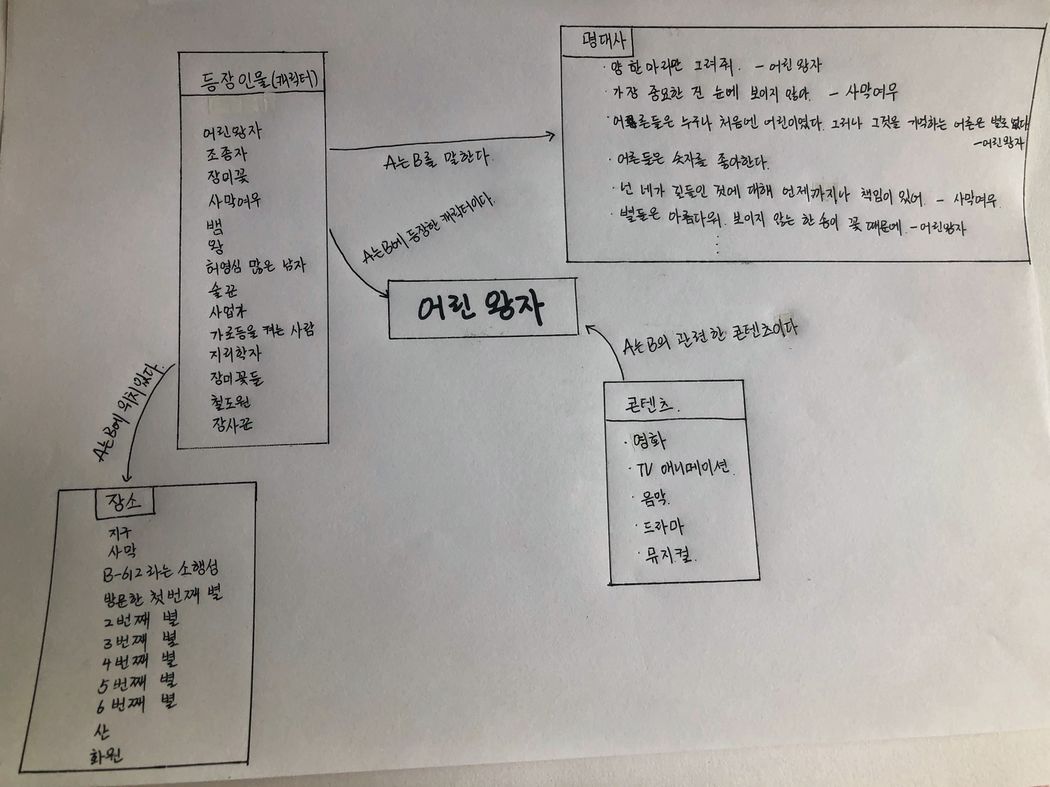 등장인물(캐릭터)
어린왕자
조종자
장미꽃
사막여우
뱀
왕
허영심 많은 남자
술꾼
사업가
가로등을 켜는 사람
지리학자
장미꽃들
철도원
장사꾼
A는 B를 말한다.
A는 B에 등장한 캐릭터이다.
A는 B에 위치있다.
명대사
· 양 한마리만 그려줘. - 어린왕자
· 가장 중요한 건 눈에 보이지 않아. - 사막여우
· 어른들은 누구나 처음엔 어린이였다. 그러나 그것을 기억하는 어른은 별로 없다.
- 어린왕자
· 어른들은 숫자를 좋아한다.
· 넌 네가 길들인 것에 대해 언제까지나 책임이 있어. - 사막여우.
· 별들은 아름다워. 보이지 않는 한 송이 꽃 때문에. - 어린왕자
어린 왕자
A는 B의 관련한 콘텐츠이다
콘텐츠.
· 영화
· TV 애니메이션.
· 음악.
· 드라마
· 뮤지컬.
장소
지구
사막
B-612라는 소행성
방문한 첫번째 별
2번째 별
3번째 별
4번째 별
5번째 별
6번째 별
산
화원